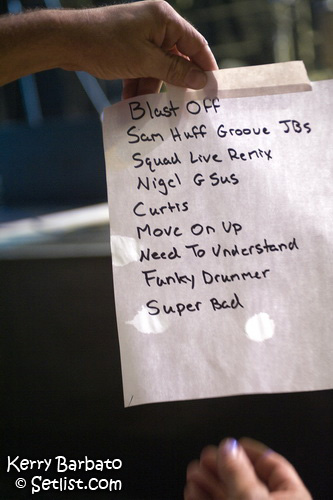 Blast Off
Sam Huff Groove JBs
Squad Live Remix
Nigel G Sus
Curtis
Move On Up
Need To Understand
Funky Drummer
Super Bad
Kerry Barbato
© Setlist.com